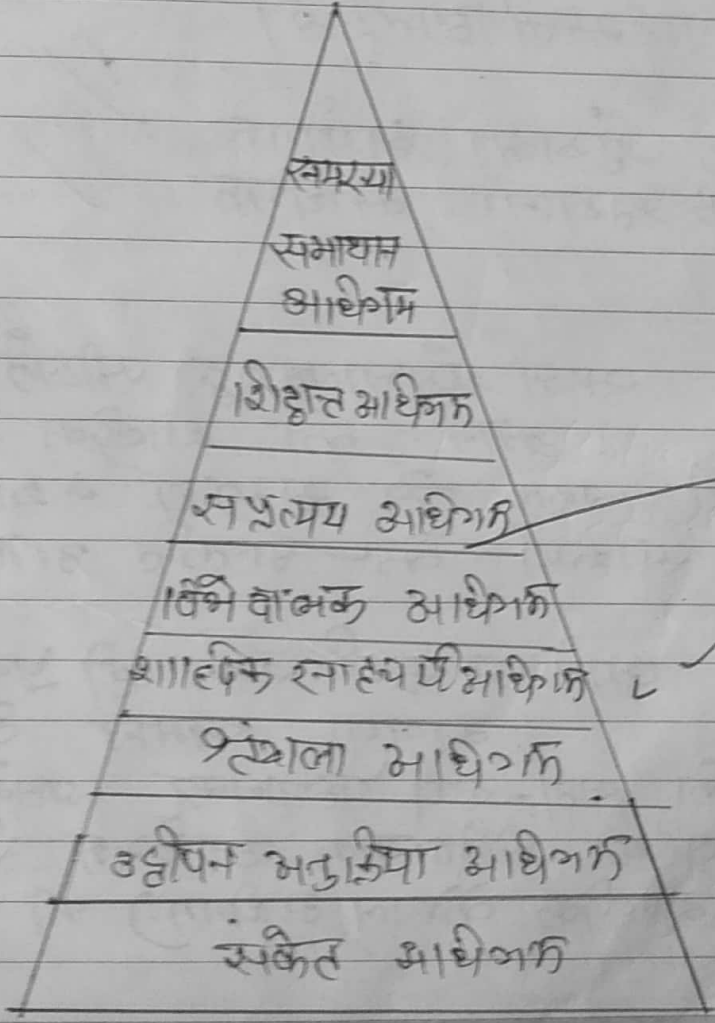 समस्या
समाधान
अधिगम
सिद्धान्त अधिगम
सप्रत्यय अधिगम
विभेदात्मक अधिगम
शाब्दिक साहचर्य अधिगम
श्रृंखला अधिगम
उद्दीपन अनुक्रिया अधिगम
संकेत अधिगम